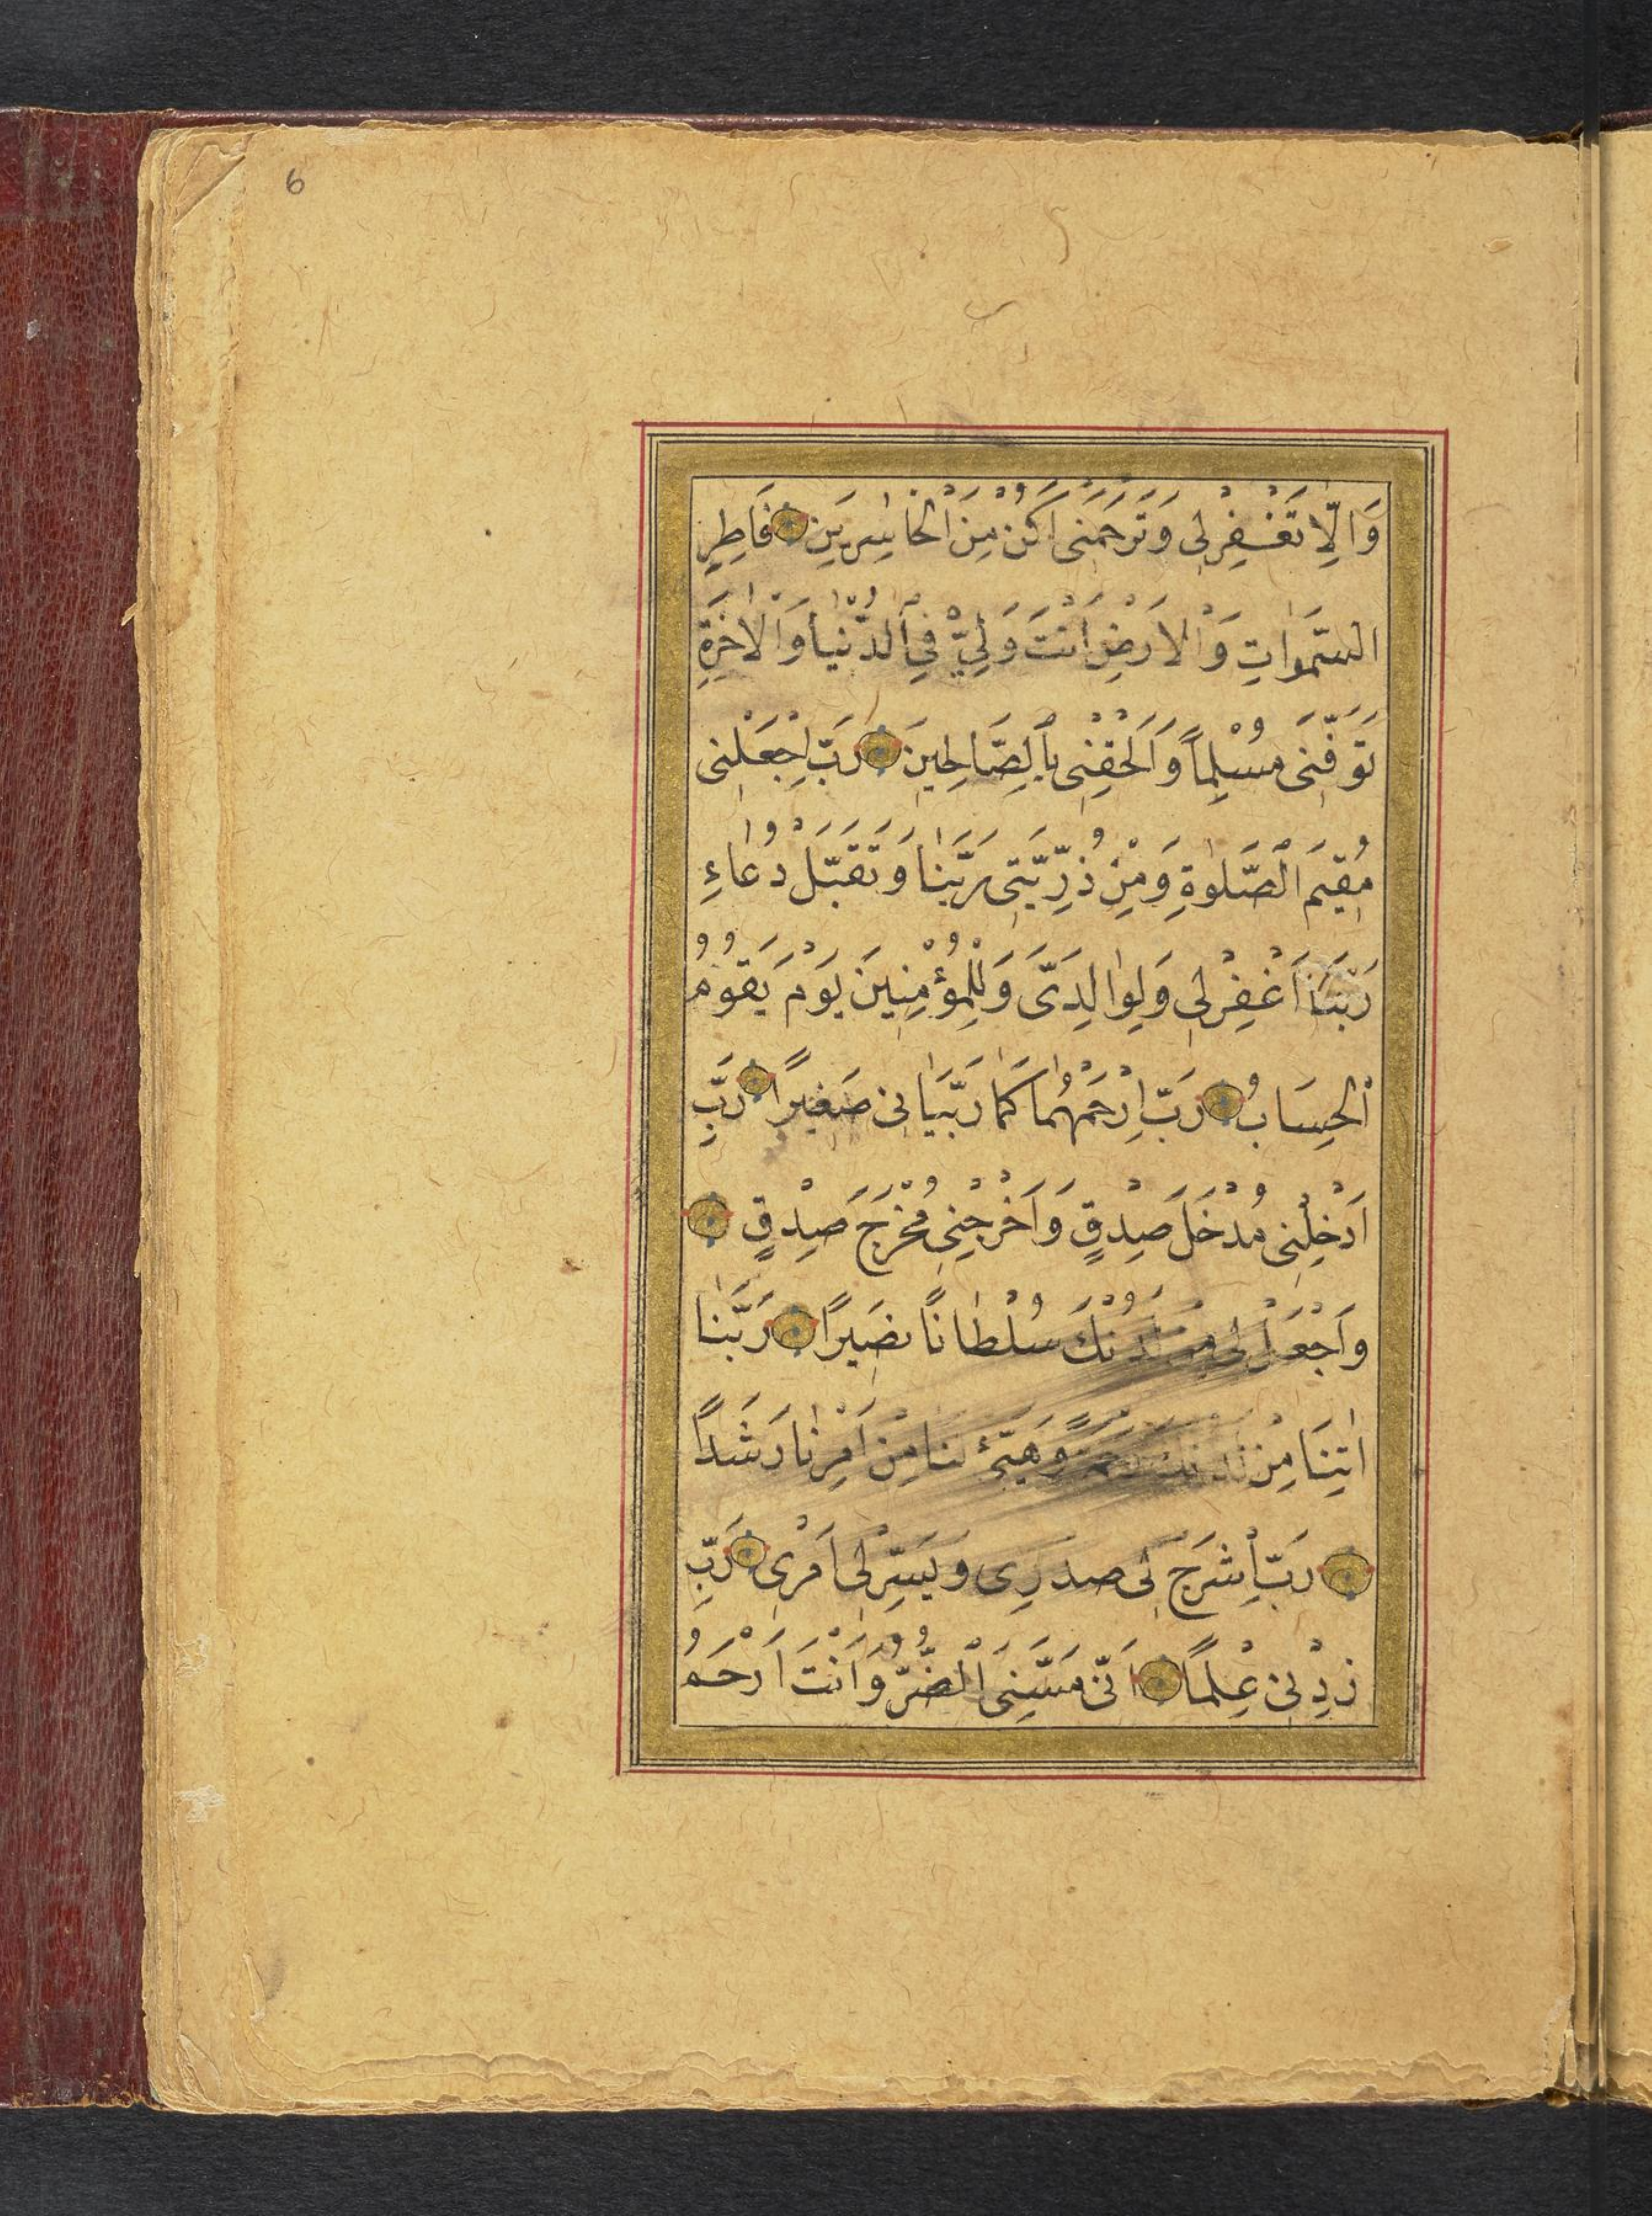 6
وَاِلَّا تَغْفِرْلِى وَتَرْحَمْنِى اَكُنْ مِنَ الْخَاسِرِينَ فَاطِرِ
السَّمٰوَاتِ وَالْاَرْضِ اَنْتَ وَلِيّٖ فِى الدُّنْيَا وَالْاٰخِرَةِ
تَوَفَّنِى مُسْلِماً وَاَلْحِقْنِى بِالصَّالِحِينَ رَبِّ اجْعَلْنِى
مُقِيمَ الصَّلٰوةِ وَمِنْ ذُرِّيَّتِى رَبَّنَا وَتَقَبَّلْ دُعَاءِ
رَبَّنَا اَغْفِرْلِى وَلِوَالِدَىَّ وَلِلْمُؤْمِنِينَ يَوْمَ يَقُومُ
الْحِسَابُ رَبِّ ارْحَمْهُمَا كَمَا رَبَّيَانِى صَغِيرًا رَبِّ
اَدْخِلْنِى مُدْخَلَ صِدْقٍ وَاَخْرِجْنِى مُخْرَجَ صِدْقٍ
وَاَجْعَلْ لِى مِنْ لَدُنْكَ سُلْطَانًا نَصِيرًا رَبَّنَا
اٰتِنَا مِنْ لَدُنْكَ رَحْمَةً وَهَيِّئْ لَنَا مِنْ اَمْرِنَا رَشَدًا
رَبِّ اشْرَحْ لِى صَدْرِى وَيَسِّرْلِى اَمْرِى رَبِّ
زِدْنِى عِلْمًا اَنِّى مَسَّنِىَ الضُّرُّ وَاَنْتَ اَرْحَمُ